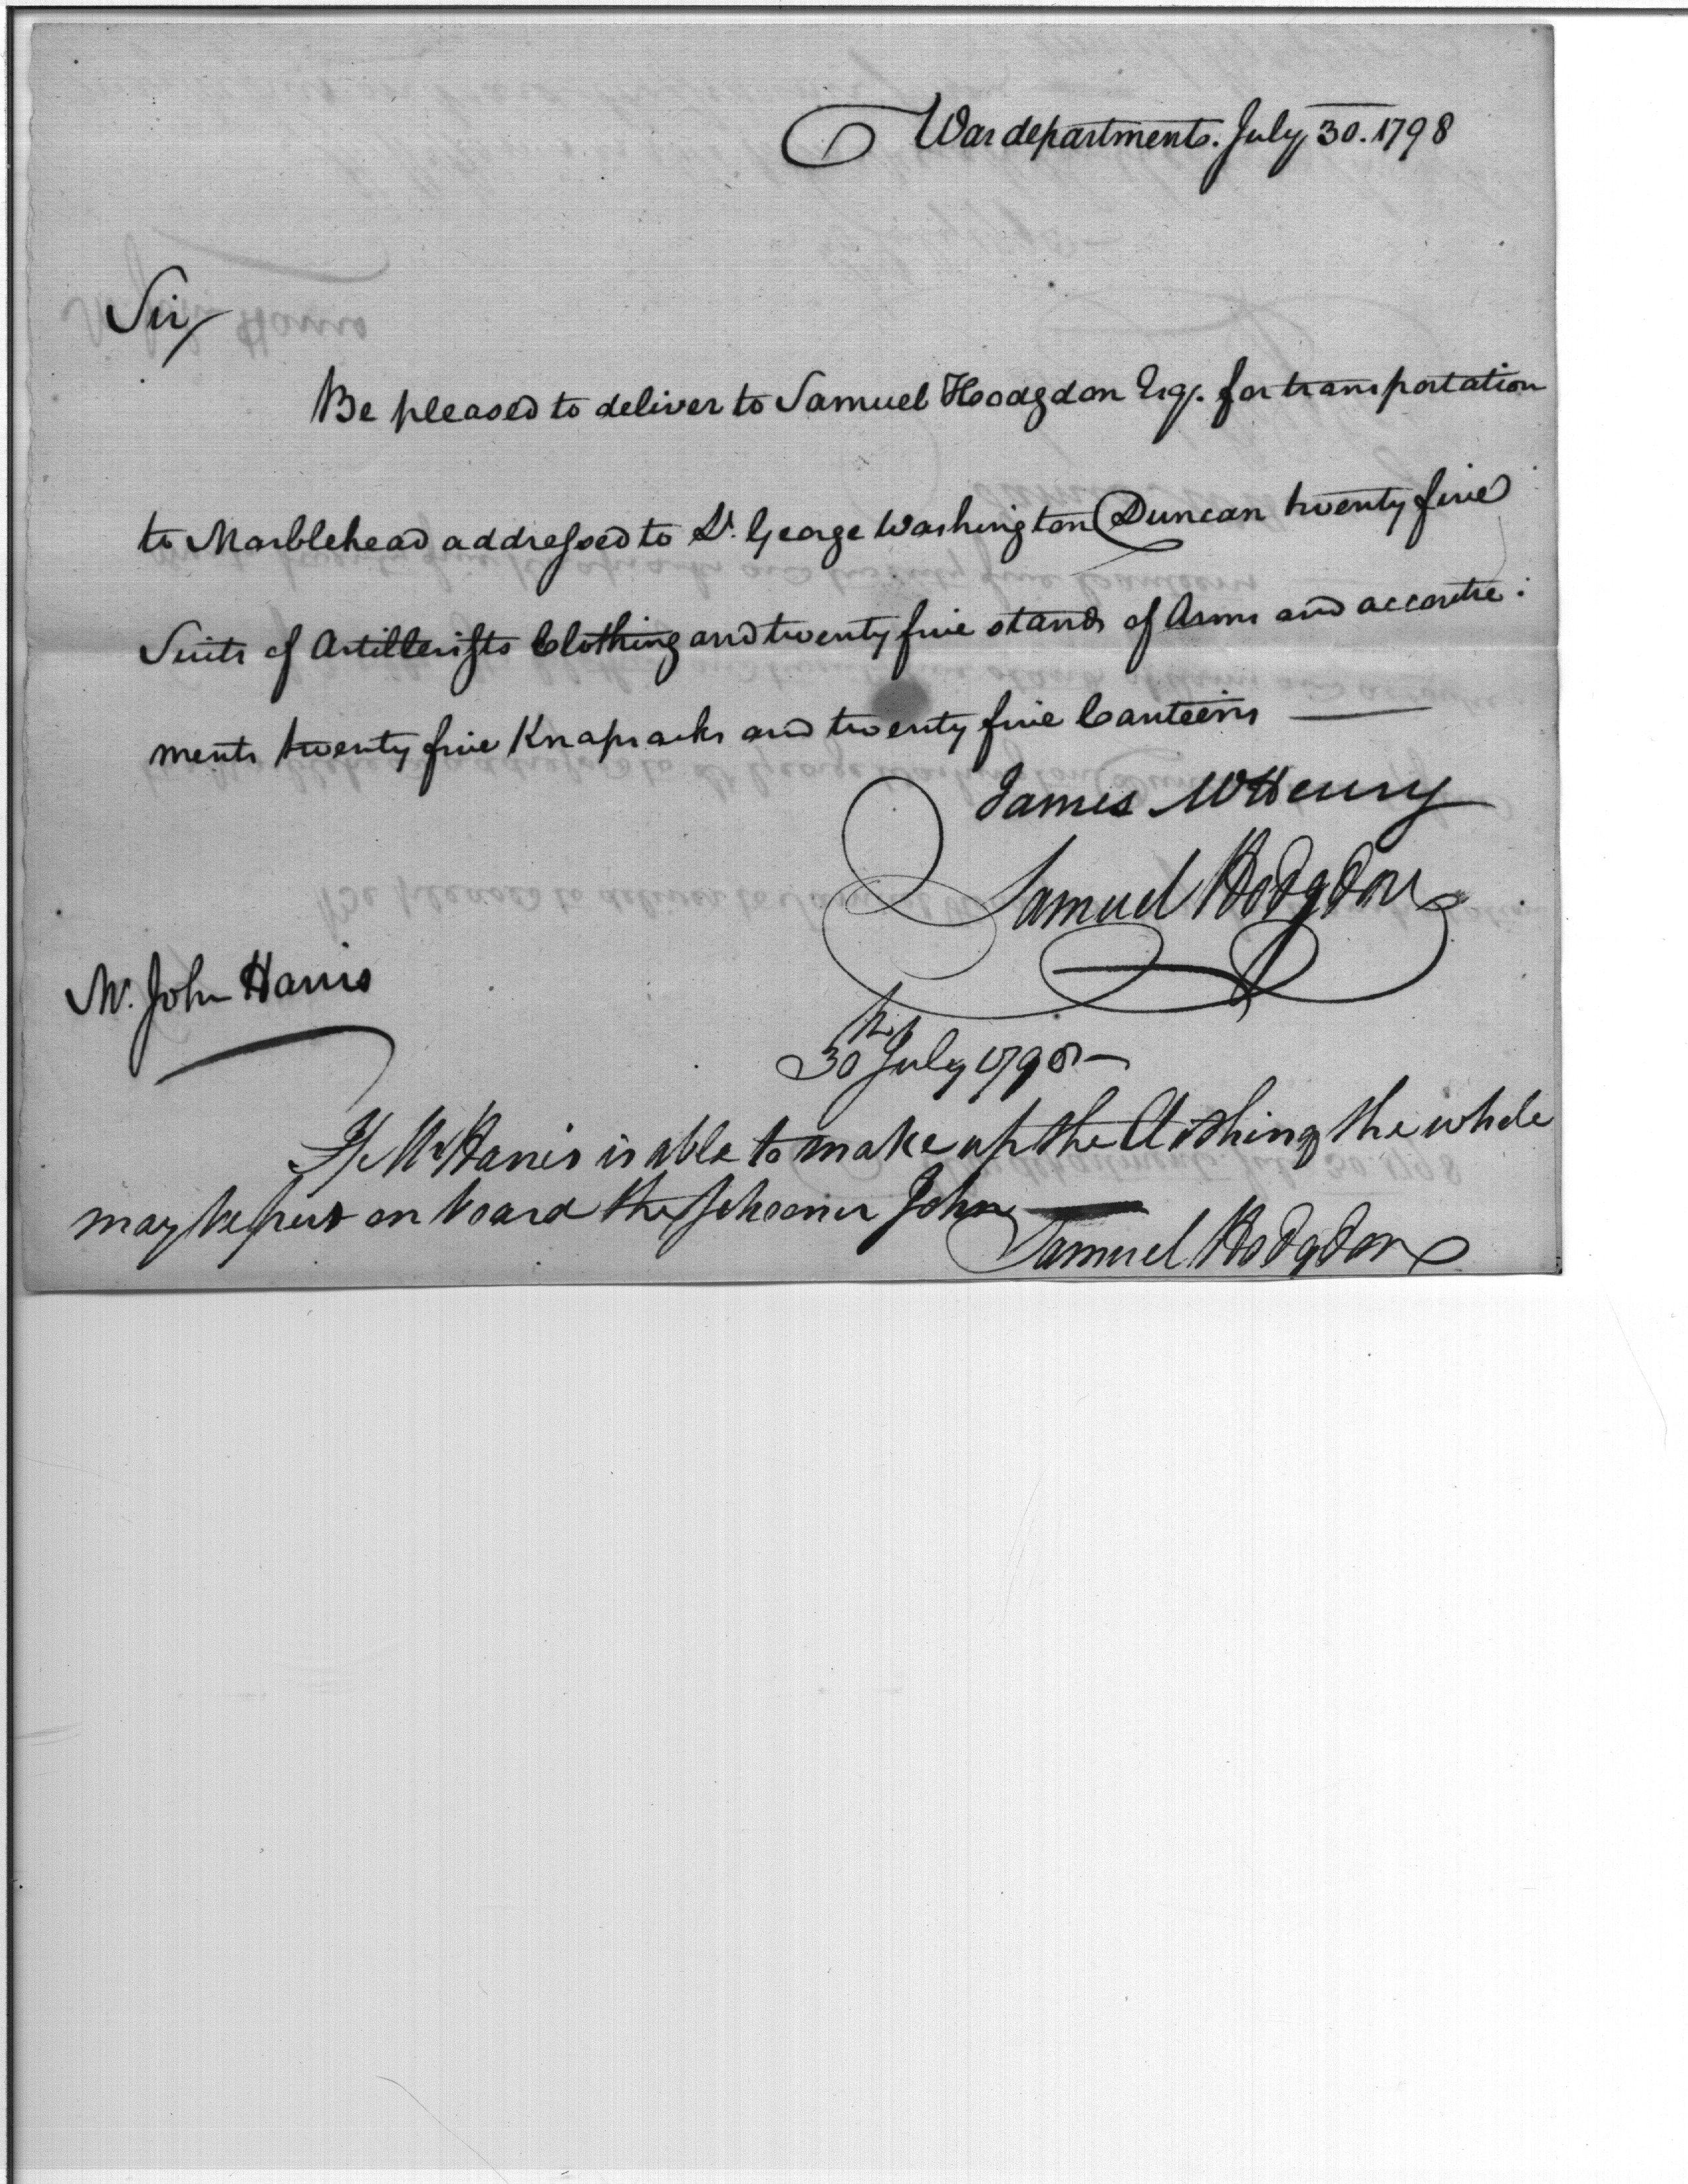 War department. July 30. 1798
Sir
Be pleased to deliver to Samuel Hodgdon Esqr. for transportation
to Marblehead addressed to Lt. George Washington Duncan twenty five
Suits of Artillerists Clothing and twenty five stands of Arms and accoutre:
ments twenty five Knapsacks and twenty five Canteens
James McHenry
Samuel Hodgdon
Mr. John Harris
30th July 1798
If Mr Harris is able to make up the Clothing the whole
may be put on board the Schooner John
Samuel Hodgdon